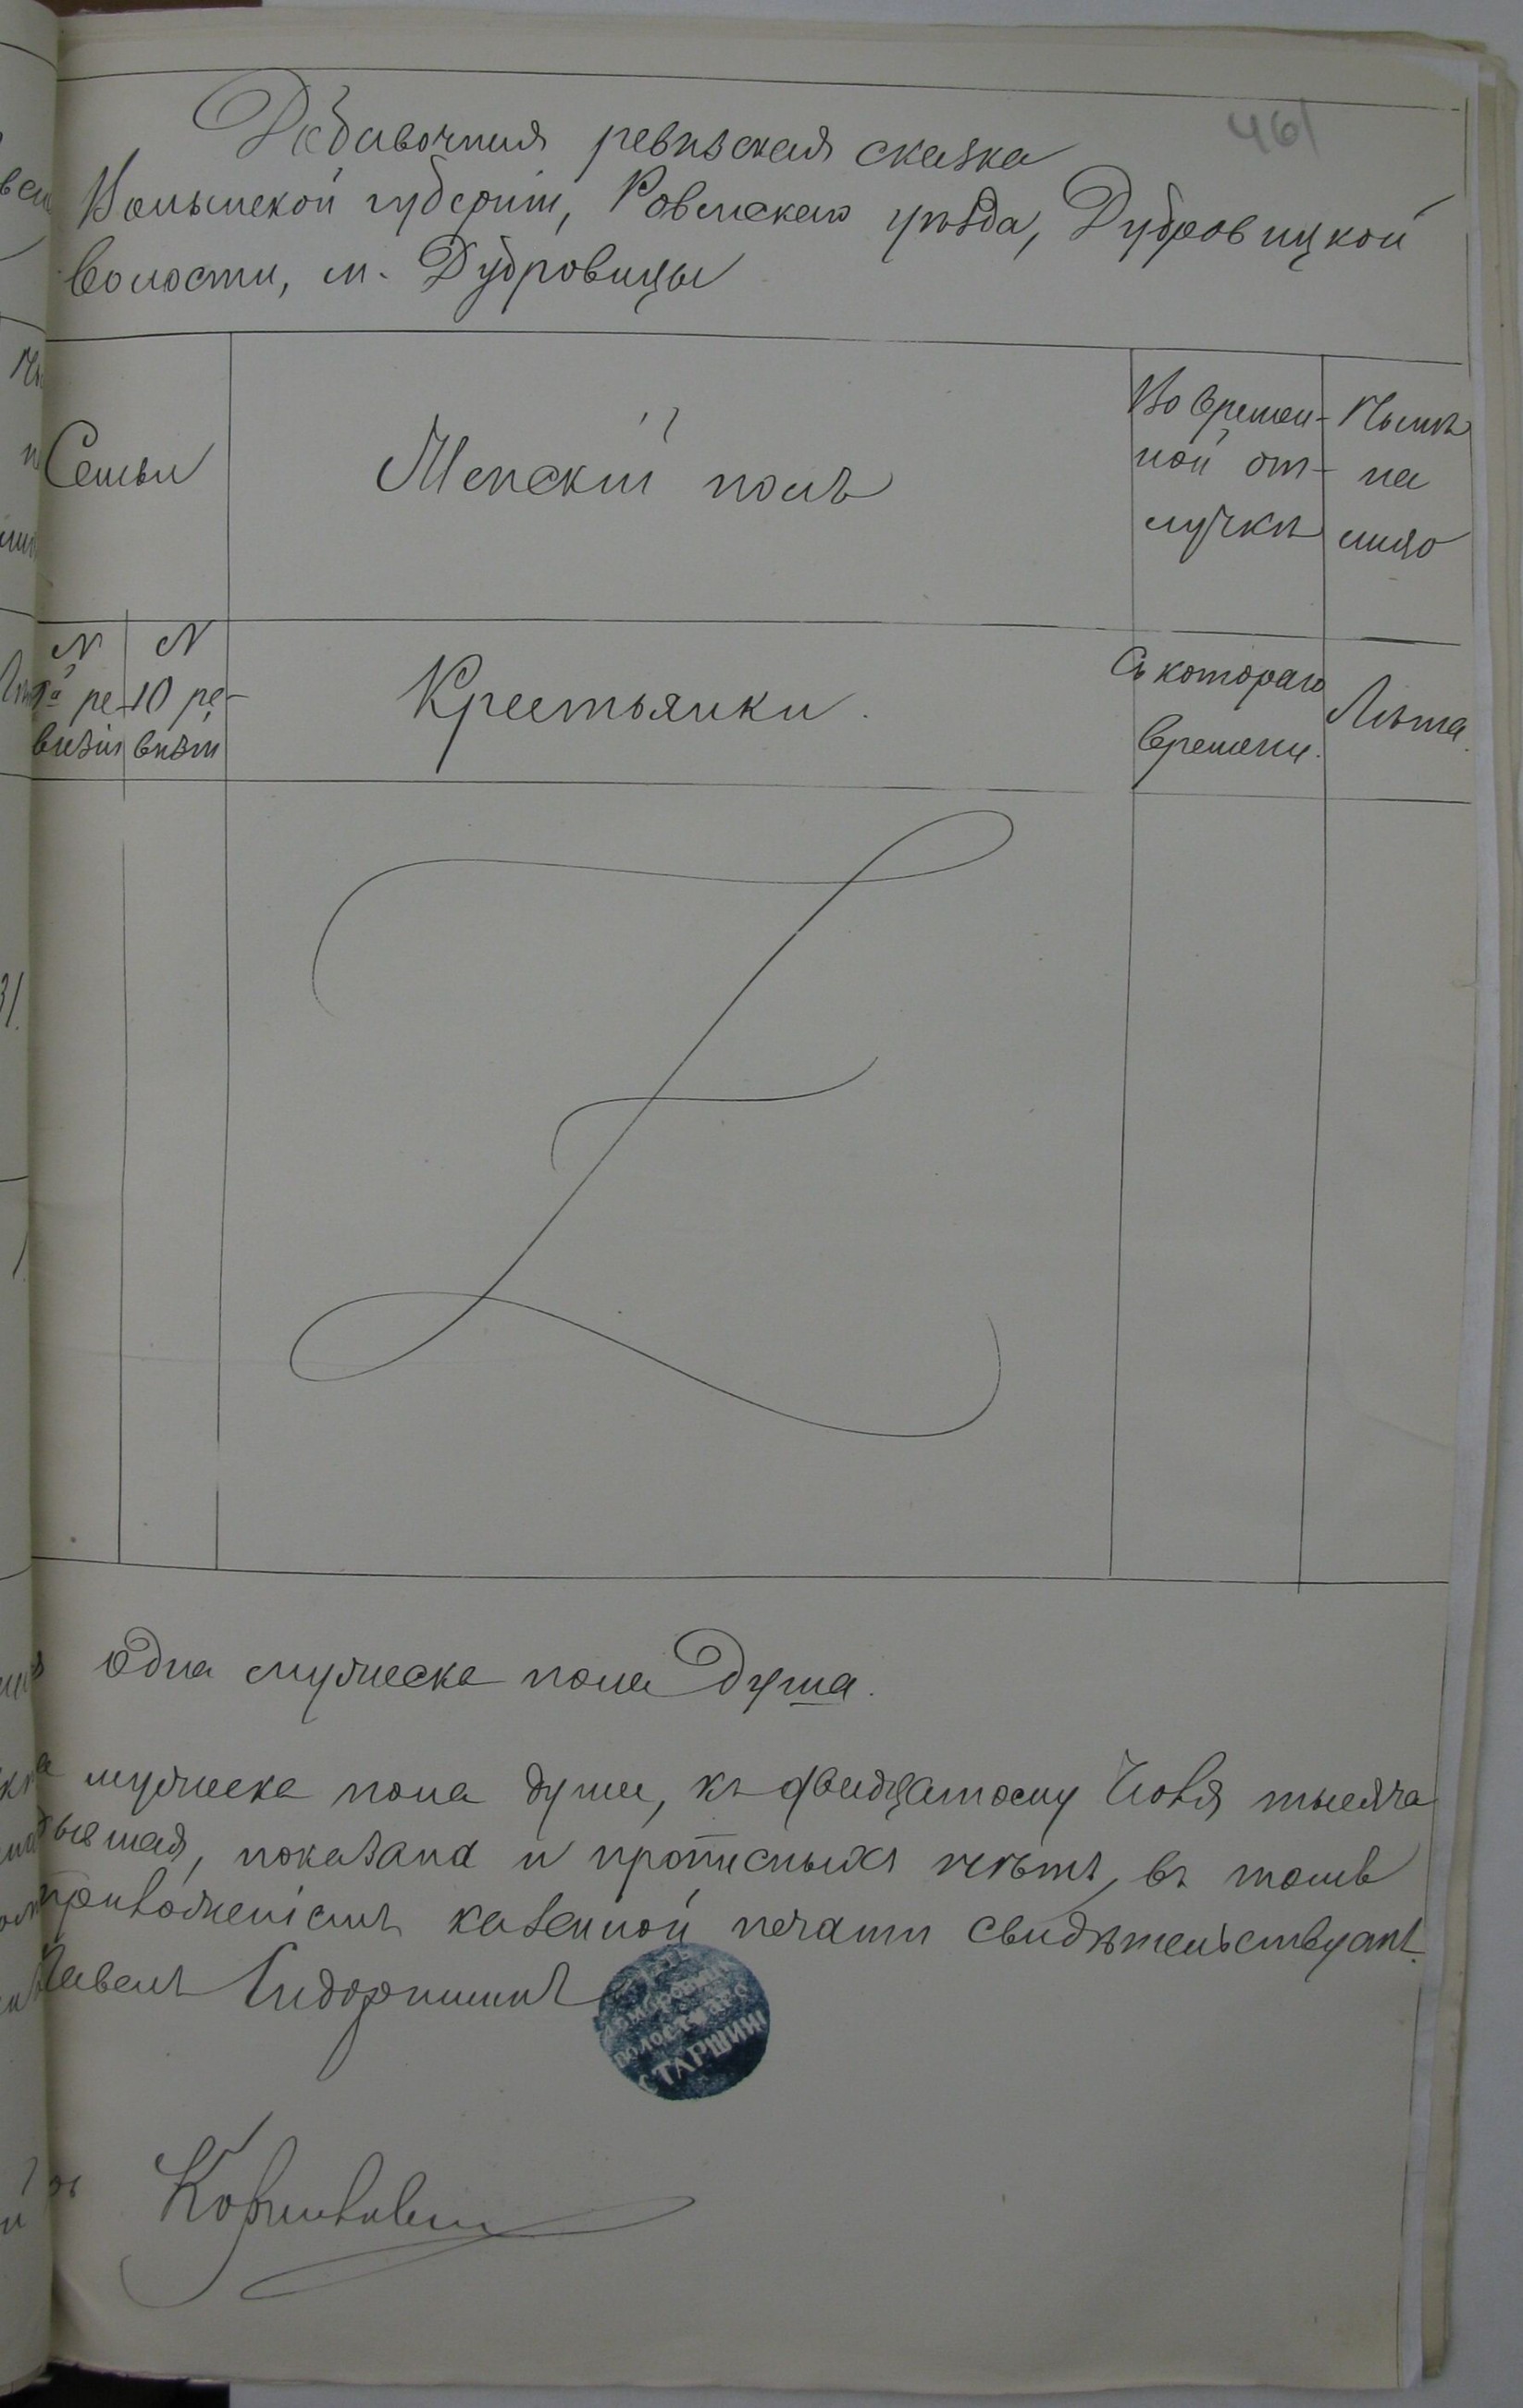 461
Добавочная ревизская сказка
Волынской губерніи, Ровенскаго уѣзда, Дубровицкой
волости, м. Дубровицы
Семьи
Женскій полъ
Во времен-
ной от-
лучкѣ
Нынѣ
на
лицо
N
9й ре-
визіи
N
10 ре-
визіи
Крестьянки.
Съ котораго
времени.
Лѣта.
одна мужеска пола душа.
мужеска пола душа, къ двадцатому Іюня тысяча
бывшая, показана и прописныхъ нѣтъ, въ томъ
приложеніемъ казенной печати свидѣтельствуютъ.
Павелъ
СТАРШИНЫ